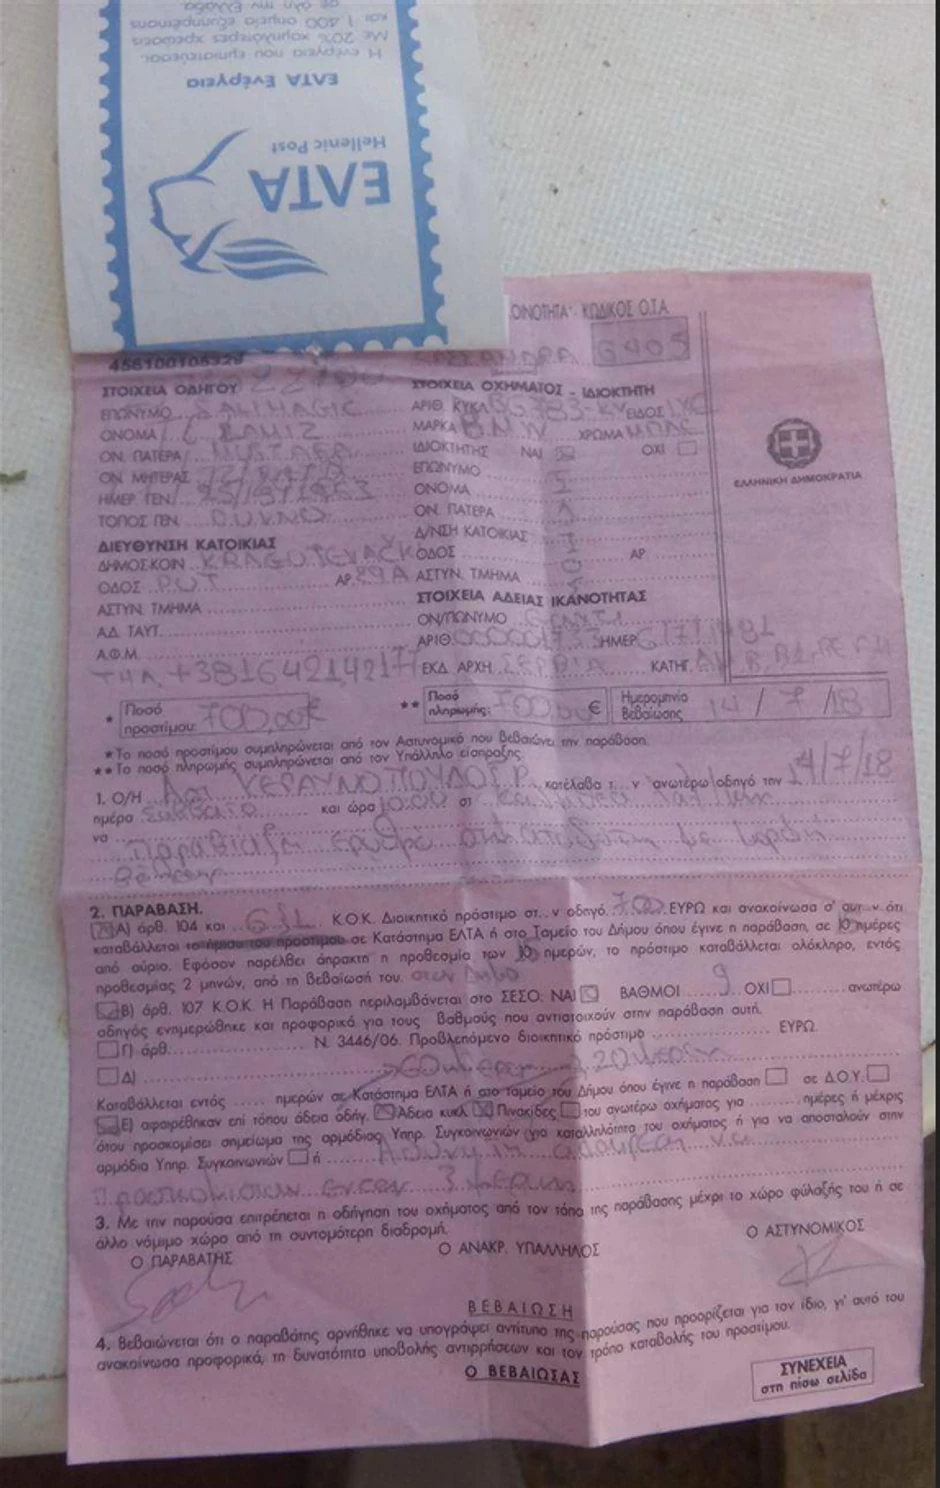 σε όλη την Ελλάδα.
και 1.400 σημεία εξυπηρέτησης
Με 20% χαμηλότερες χρεώσεις
Η ενέργεια που εμπιστεύεσαι.
ΕΛΤΑ Ενέργεια
Hellenic Post
ΕΛΤΑ
ΟΙΝΟΤΗΤΑ - ΚΩΔΙΚΟΣ Ο.Τ.Α.
456100105329
6405
ΣΤΟΙΧΕΙΑ ΟΔΗΓΟΥ
ΕΠΩΝΥΜΟ SALIHAGIC
ΟΝΟΜΑ RAMIZ
ΟΝ. ΠΑΤΕΡΑ MUSTAFA
ΟΝ. ΜΗΤΕΡΑΣ
ΗΜΕΡ. ΓΕΝ.
ΤΟΠΟΣ ΓΕΝ. DUVNO
ΔΙΕΥΘΥΝΣΗ ΚΑΤΟΙΚΙΑΣ
ΔΗΜΟΣ ΚΟΙΝ. KRAGUJEVAČK
ΟΔΟΣ PUT ΑΡ. 29A
ΑΣΤΥΝ. ΤΜΗΜΑ
Α.Δ. ΤΑΥΤ.
Α.Φ.Μ.
ΣΤΟΙΧΕΙΑ ΟΧΗΜΑΤΟΣ - ΙΔΙΟΚΤΗΤΗ
ΑΡΙΘ. ΚΥΚΛ. ΕΙΔΟΣ ΙΧΕ
ΜΑΡΚΑ BMW ΧΡΩΜΑ ΜΠΛΕ
ΙΔΙΟΚΤΗΤΗΣ ΝΑΙ ΟΧΙ
ΕΠΩΝΥΜΟ
ΟΝΟΜΑ
ΟΝ. ΠΑΤΕΡΑ
Δ/ΝΣΗ ΚΑΤΟΙΚΙΑΣ
ΟΔΟΣ ΑΡ
ΑΣΤΥΝ. ΤΜΗΜΑ
ΣΤΟΙΧΕΙΑ ΑΔΕΙΑΣ ΙΚΑΝΟΤΗΤΑΣ
ΟΝ/ΠΩΝΥΜΟ
ΑΡΙΘ. ΗΜΕΡ
ΕΚΔ. ΑΡΧΗ ΣΕΡΒΙΑ ΚΑΤΗΓ.
ΕΛΛΗΝΙΚΗ ΔΗΜΟΚΡΑΤΙΑ
* Ποσό προστίμου: 700,00€
** Ποσό πληρωμής: 700,00 €
Ημερομηνία Βεβαίωσης 14 / 7 /18
*Το ποσό προστίμου συμπληρώνεται από τον Αστυνομικό που βεβαιώνει την παράβαση.
**Το ποσό πληρωμής συμπληρώνεται από τον Υπάλληλο είσπραξης.
1. Ο/Η ΚΕΡΑΥΝΟΠΟΥΛΟΣ Ρ. κατέλαβα τ.. ν ανωτέρω οδηγό την 14/7/18
ημέρα Σάββατο και ώρα 10:00 στ
να παραβιάζη ερυθρό
2. ΠΑΡΑΒΑΣΗ.
Α) άρθ. 104 και Κ.Ο.Κ. Διοικητικό πρόστιμο στ.. ν οδηγό 700 ΕΥΡΩ και ανακοίνωσα σ' αυτ.. ν ότι
καταβάλλεται το ήμισυ του προστίμου σε Κατάστημα ΕΛΤΑ ή στο Ταμείο του Δήμου όπου έγινε η παράβαση, σε 10 ημέρες
από αύριο. Εφόσον παρέλθει άπρακτη η προθεσμία των 10 ημερών, το πρόστιμο καταβάλλεται ολόκληρο, εντός
προθεσμίας 2 μηνών, από τη βεβαίωσή του.
Β) άρθ. 107 Κ.Ο.Κ. Η Παράβαση περιλαμβάνεται στο ΣΕΣΟ: ΝΑΙ ΒΑΘΜΟΙ 9 ΟΧΙ ανωτέρω
οδηγός ενημερώθηκε και προφορικά για τους βαθμούς που αντιστοιχούν στην παράβαση αυτή.
Γ) άρθ. Ν. 3446/06. Προβλεπόμενο διοικητικό πρόστιμο ΕΥΡΩ
Δ)
Καταβάλλεται εντός ημερών σε Κατάστημα ΕΛΤΑ ή στο Ταμείο του Δήμου όπου έγινε η παράβαση σε Δ.Ο.Υ.
Ε) αφαιρέθηκαν επί τόπου άδεια οδήγ. Άδεια κυκλ. Πινακίδες του ανωτέρω οχήματος για ημέρες ή μέχρις
ότου προσκομίσει σημείωμα της αρμόδιας Υπηρ. Συγκοινωνιών για καταλληλότητα του οχήματος ή για να αποσταλούν στην
αρμόδια Υπηρ. Συγκοινωνιών ή
3. Με την παρούσα επιτρέπεται η οδήγηση του οχήματος από τον τόπο της παράβασης μέχρι το χώρο φύλαξής του ή σε
άλλο νόμιμο χώρο από τη συντομότερη διαδρομή.
Ο ΠΑΡΑΒΑΤΗΣ Ο ΑΝΑΚΡ. ΥΠΑΛΛΗΛΟΣ Ο ΑΣΤΥΝΟΜΙΚΟΣ
ΒΕΒΑΙΩΣΗ
4. Βεβαιώνεται ότι ο παραβάτης αρνήθηκε να υπογράψει αντίτυπο της παρούσας που προορίζεται για τον ίδιο, γι' αυτό του
ανακοίνωσα προφορικά, τη δυνατότητα υποβολής αντιρρήσεων και τον τρόπο καταβολής του προστίμου.
Ο ΒΕΒΑΙΩΣΑΣ
ΣΥΝΕΧΕΙΑ
στη πίσω σελίδα